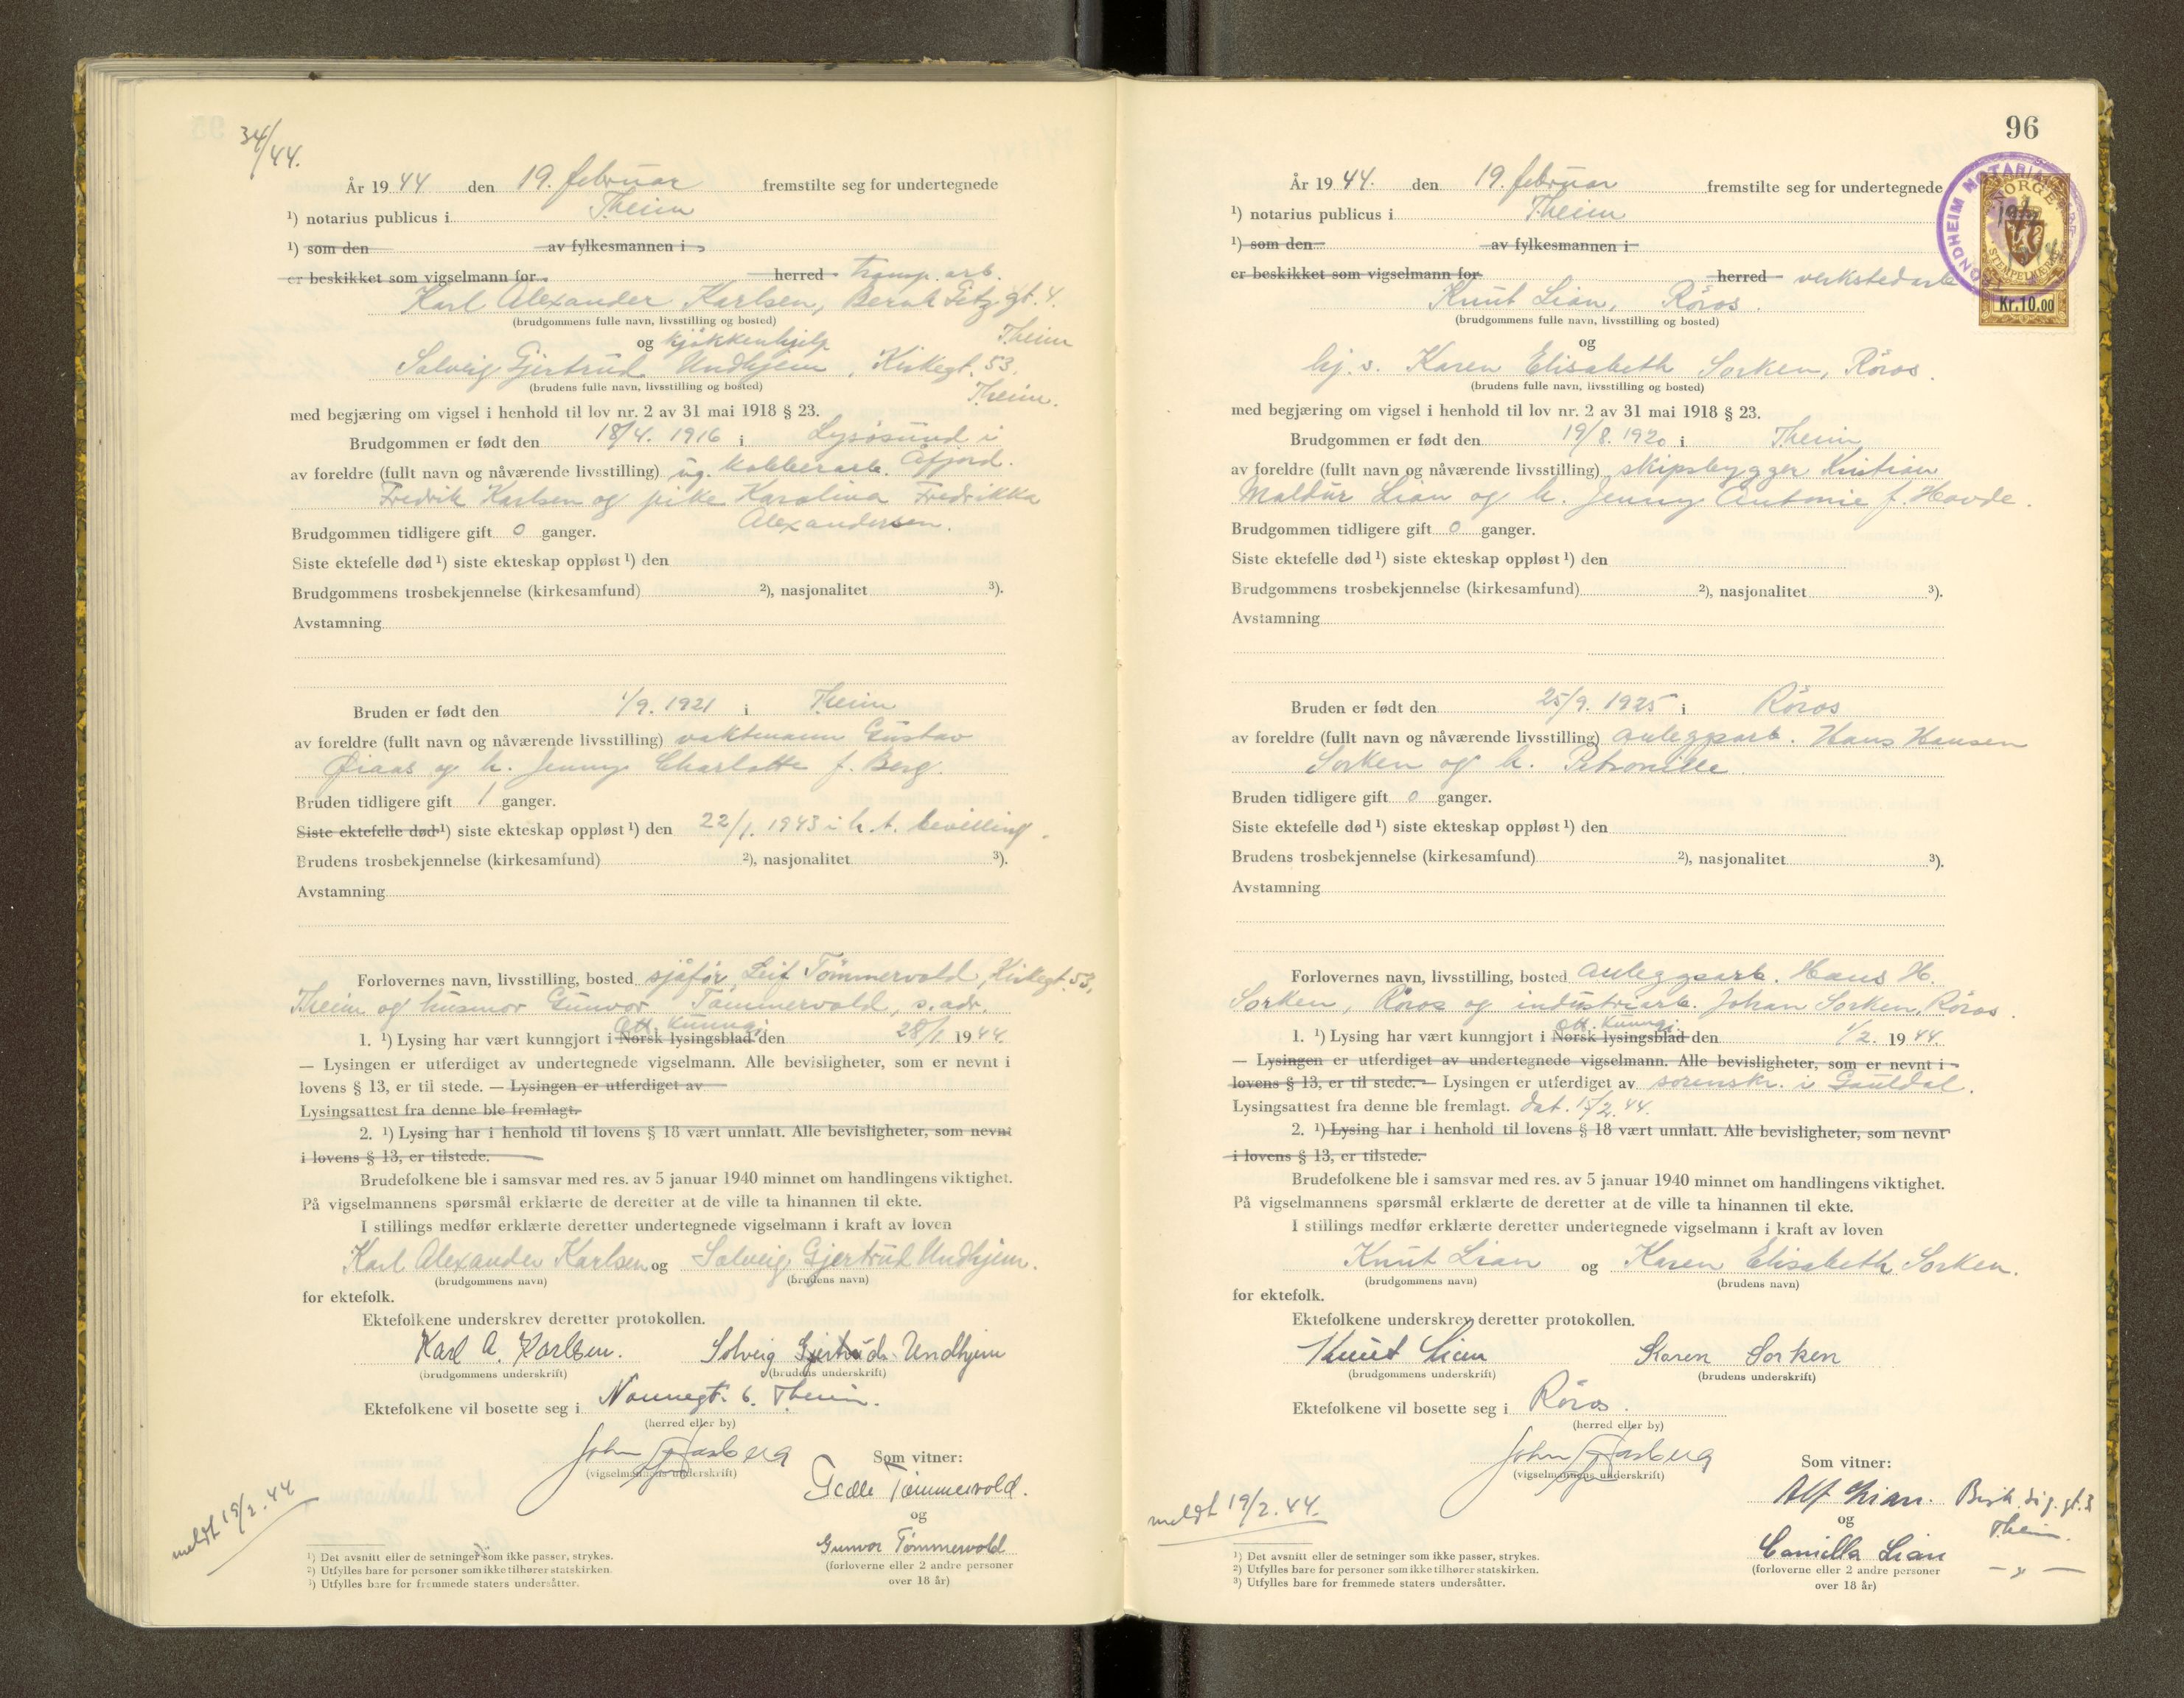 34/44.
År 19 44 den 19. februar fremstilte seg for undertegnede
¹) notarius publicus i Theim
¹) som den av fylkesmannen i
er beskikket som vigselmann for herred transp. arb.
Karl Alexander Karlsen, Bernh. Getz gt. 4.
(brudgommens fulle navn, livsstilling og bosted)
Theim
og kjøkkenhjelp
Solveig Gjertrud Undhjem, Kirkegt. 53.
(brudens fulle navn, livsstilling og bosted)
Theim.
med begjæring om vigsel i henhold til lov nr. 2 av 31 mai 1918 § 23.
Brudgommen er født den 18/4. 1916 i Lysøsund i
av foreldre (fullt navn og nåværende livsstilling) ug. kobberarb. Åfjord.
Fredrik Karlsen og pike Karolina Fredrikka
Alexandersen.
Brudgommen tidligere gift 0 ganger.
Siste ektefelle død ¹) siste ekteskap oppløst ¹) den
Brudgommens trosbekjennelse (kirkesamfund) ²), nasjonalitet ³).
Avstamning
Bruden er født den 1/9. 1921 i Theim
av foreldre (fullt navn og nåværende livsstilling) vaktmann Gustav
Øiaas og h. Jenny Charlotte f. Berg.
Bruden tidligere gift 1 ganger.
Siste ektefelle død ¹) siste ekteskap oppløst ¹) den 22/1. 1943 i h. t. bevilling.
Brudens trosbekjennelse (kirkesamfund) ²), nasjonalitet ³).
Avstamning
Forlovernes navn, livsstilling, bosted sjåfør Leif Tömmervold, Kirkegt. 53,
Theim og husmor Gunvor Tömmervold, s. adr.
Off. kunngj.
1. ¹) Lysing har vært kunngjort i Norsk lysingsblad den 28/1. 19 44.
— Lysingen er utferdiget av undertegnede vigselmann. Alle bevisligheter, som er nevnt i
lovens § 13, er til stede. — Lysingen er utferdiget av
Lysingsattest fra denne ble fremlagt.
2. ¹) Lysing har i henhold til lovens § 18 vært unnlatt. Alle bevisligheter, som nevnt
i lovens § 13, er tilstede.
Brudefolkene ble i samsvar med res. av 5 januar 1940 minnet om handlingens viktighet.
På vigselmannens spørsmål erklærte de deretter at de ville ta hinannen til ekte.
I stillings medfør erklærte deretter undertegnede vigselmann i kraft av loven
Karl Alexander Karlsen og Solveig Gjertrud Undhjem.
(brudgommens navn) (brudens navn)
for ektefolk.
Ektefolkene underskrev deretter protokollen.
Karl A. Karlsen. Solveig Gjertrud Undhjem
(brudgommens underskrift) (brudens underskrift)
Ektefolkene vil bosette seg i Nonnegt. 6. Theim.
(herred eller by)
John
(vigselmannens underskrift)
Som vitner:
Tömmervold.
og
Gunvor Tömmervold
(forloverne eller 2 andre personer
over 18 år)
meldt 19/2. 44
¹) Det avsnitt eller de setninger som ikke passer, strykes.
²) Utfylles bare for personer som ikke tilhører statskirken.
³) Utfylles bare for fremmede staters undersåtter.
96
TRONDHEIM NOTARIALKONTOR
NORGE
STEMPELMERKE
Kr. 10.00
År 19 44. den 19. februar fremstilte seg for undertegnede
¹) notarius publicus i Theim
¹) som den av fylkesmannen i
er beskikket som vigselmann for herred verkstedarb
Knut Lian, Röros.
(brudgommens fulle navn, livsstilling og bosted)
og
hj. v. Karen Elisabeth Sorken, Röros.
(brudens fulle navn, livsstilling og bosted)
med begjæring om vigsel i henhold til lov nr. 2 av 31 mai 1918 § 23.
Brudgommen er født den 19/8. 1920 i Theim
av foreldre (fullt navn og nåværende livsstilling) skipsbygger Kristian
Maldur Lian og h. Jenny Antonie f. Hovde.
Brudgommen tidligere gift 0 ganger.
Siste ektefelle død ¹) siste ekteskap oppløst ¹) den
Brudgommens trosbekjennelse (kirkesamfund) ²), nasjonalitet ³).
Avstamning
Bruden er født den 25/9. 1925 i Röros
av foreldre (fullt navn og nåværende livsstilling) anleggsarb. Hans Hansen
Sorken og h. Petronille.
Bruden tidligere gift 0 ganger.
Siste ektefelle død ¹) siste ekteskap oppløst ¹) den
Brudens trosbekjennelse (kirkesamfund) ²), nasjonalitet ³).
Avstamning
Forlovernes navn, livsstilling, bosted anleggsarb. Hans H.
Sorken, Röros og industriarb. Johan Sorken, Röros.
Off. kunngj.
1. ¹) Lysing har vært kunngjort i Norsk lysingsblad den 1/2. 19 44.
— Lysingen er utferdiget av undertegnede vigselmann. Alle bevisligheter, som er nevnt i
lovens § 13, er til stede. — Lysingen er utferdiget av sorenskr. i Gauldal.
Lysingsattest fra denne ble fremlagt. dat. 15/2. 44.
2. ¹) Lysing har i henhold til lovens § 18 vært unnlatt. Alle bevisligheter, som nevnt
i lovens § 13, er tilstede.
Brudefolkene ble i samsvar med res. av 5 januar 1940 minnet om handlingens viktighet.
På vigselmannens spørsmål erklærte de deretter at de ville ta hinannen til ekte.
I stillings medfør erklærte deretter undertegnede vigselmann i kraft av loven
Knut Lian og Karen Elisabeth Sorken.
(brudgommens navn) (brudens navn)
for ektefolk.
Ektefolkene underskrev deretter protokollen.
Knut Lian Karen Sorken
(brudgommens underskrift) (brudens underskrift)
Ektefolkene vil bosette seg i Röros.
(herred eller by)
John
(vigselmannens underskrift)
Som vitner:
Alf Lian.
og Theim.
Camilla Lian
(forloverne eller 2 andre personer
over 18 år)
meldt 19/2. 44.
¹) Det avsnitt eller de setninger som ikke passer, strykes.
²) Utfylles bare for personer som ikke tilhører statskirken.
³) Utfylles bare for fremmede staters undersåtter.